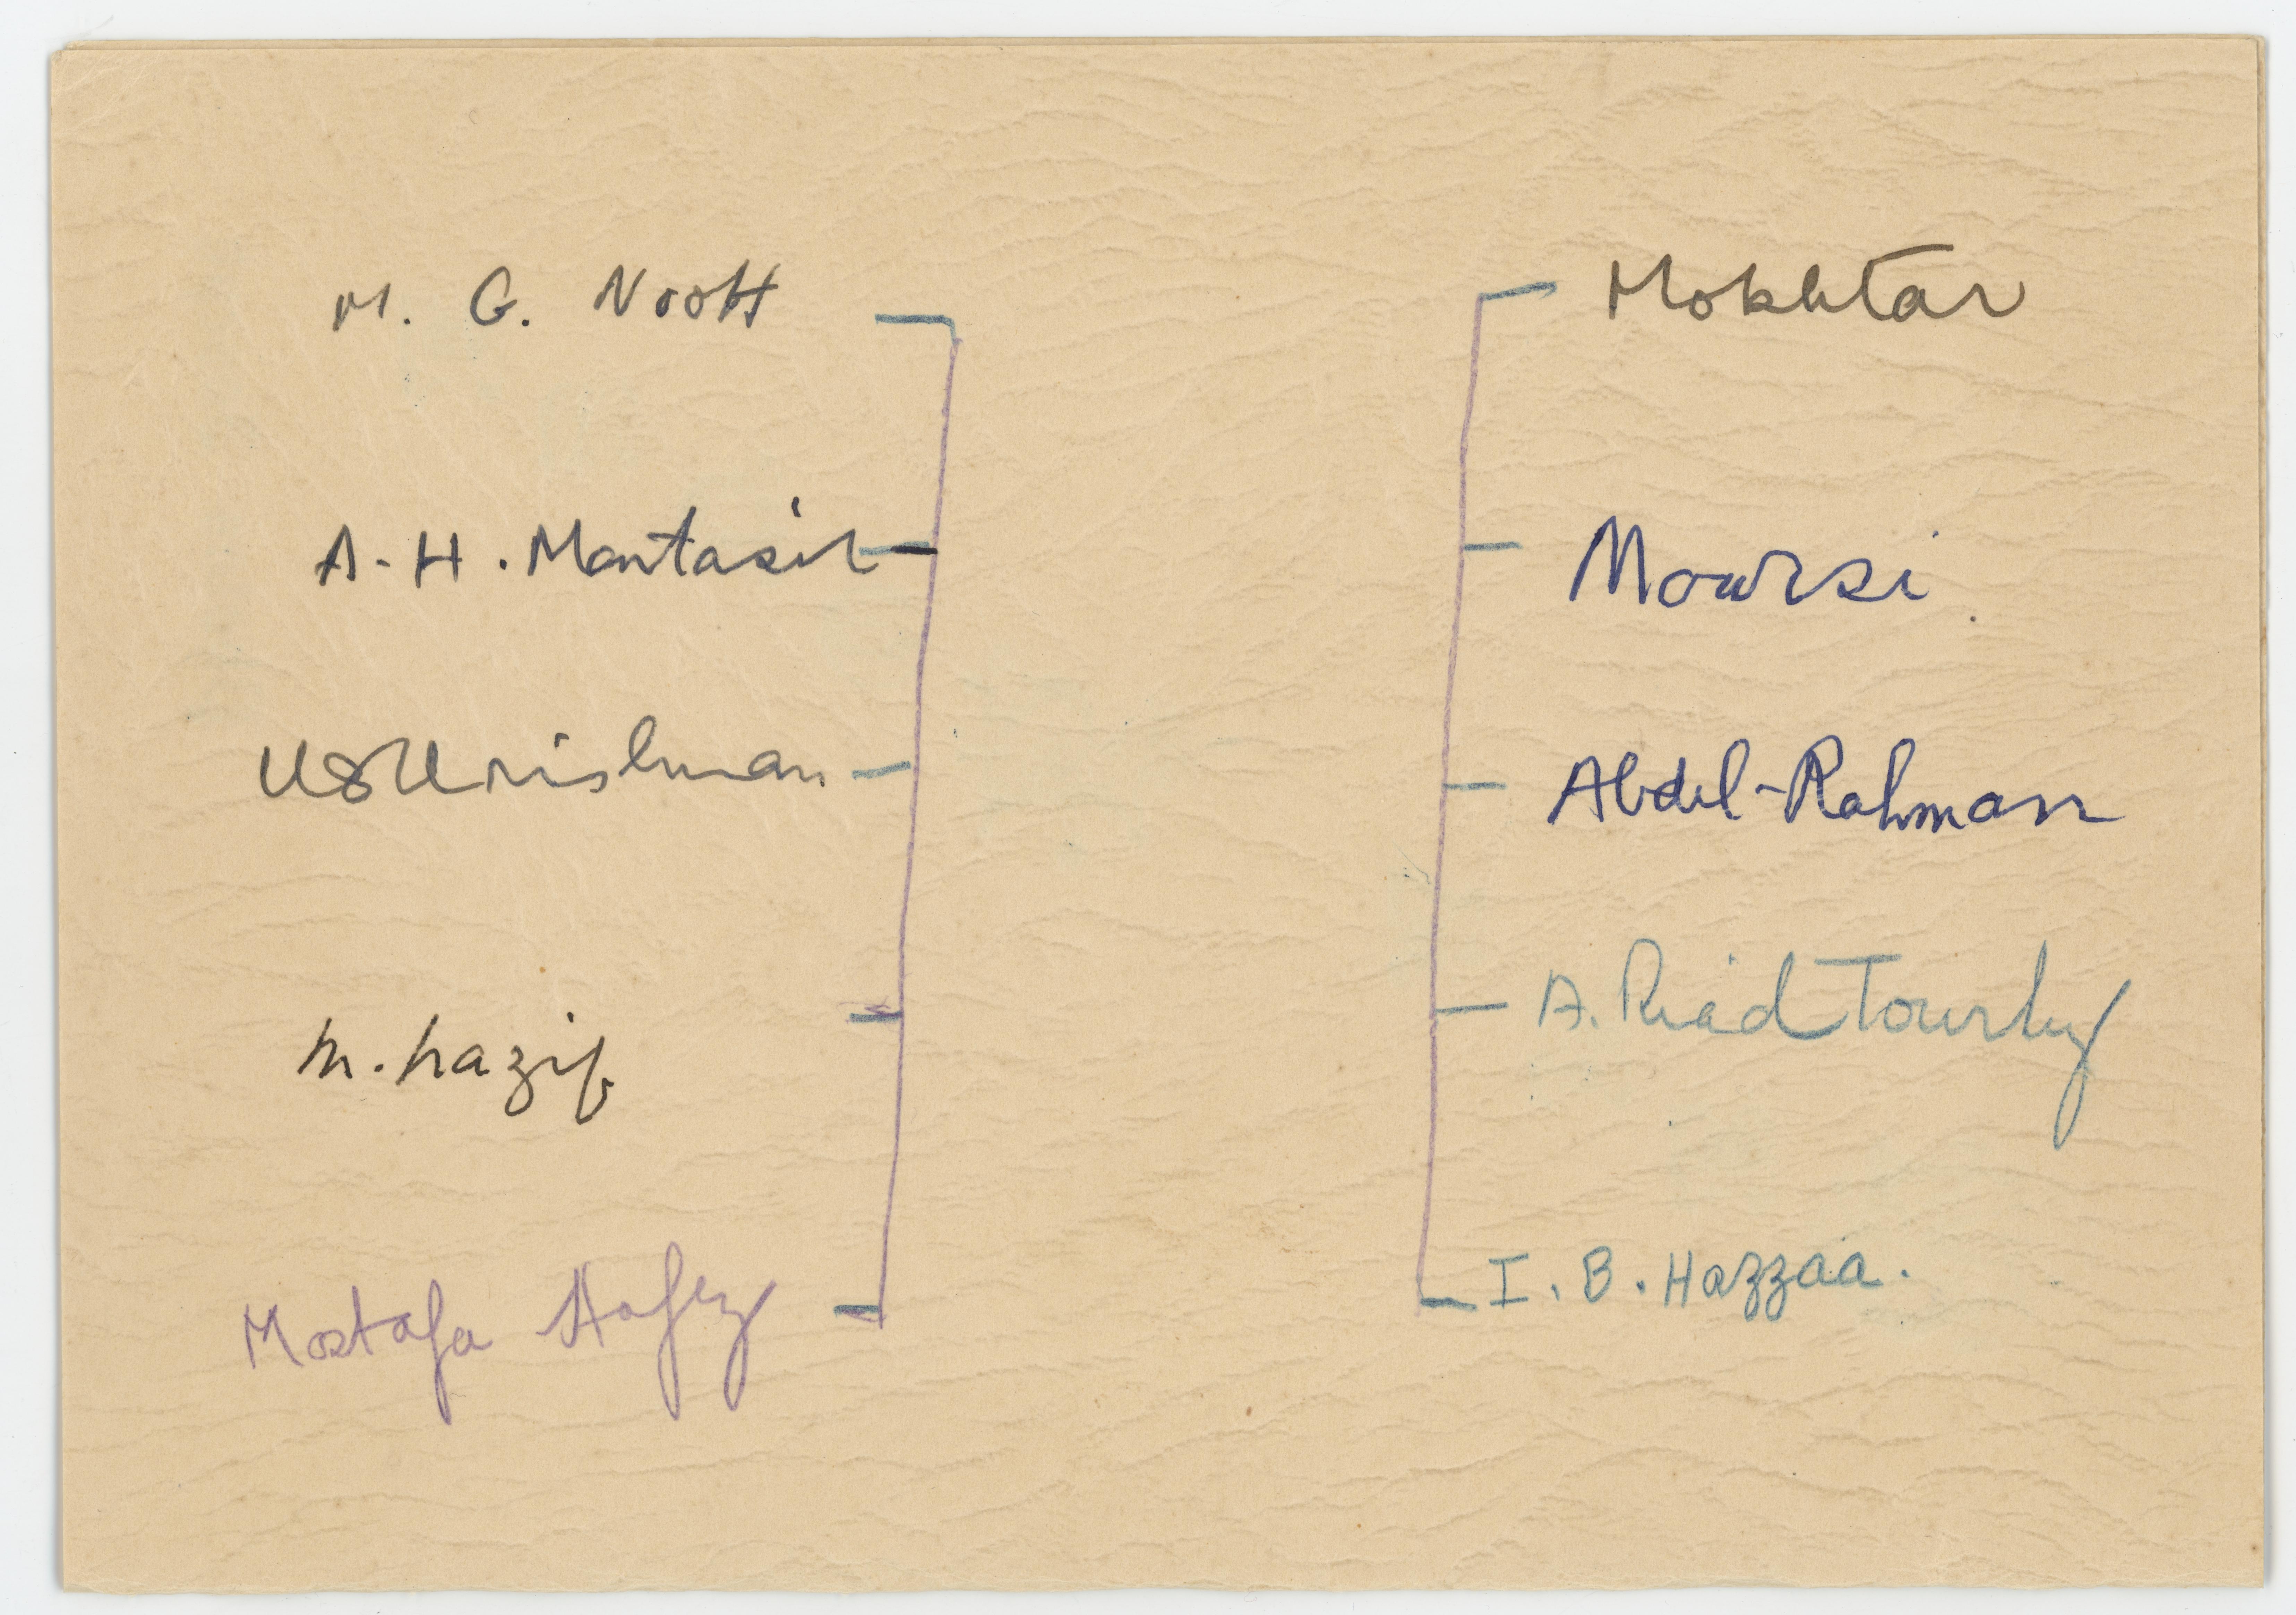 M. G. Nooh
A. H. Montasir
M. Nazif
Mostafa Hafez
Mokhtar
Moursi
Abdel-Rahman
A. Riad Tourky
I. B. Hazzaa.